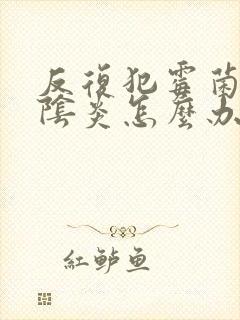 反復犯霉菌
陰炎怎麼办
紅鲈鱼